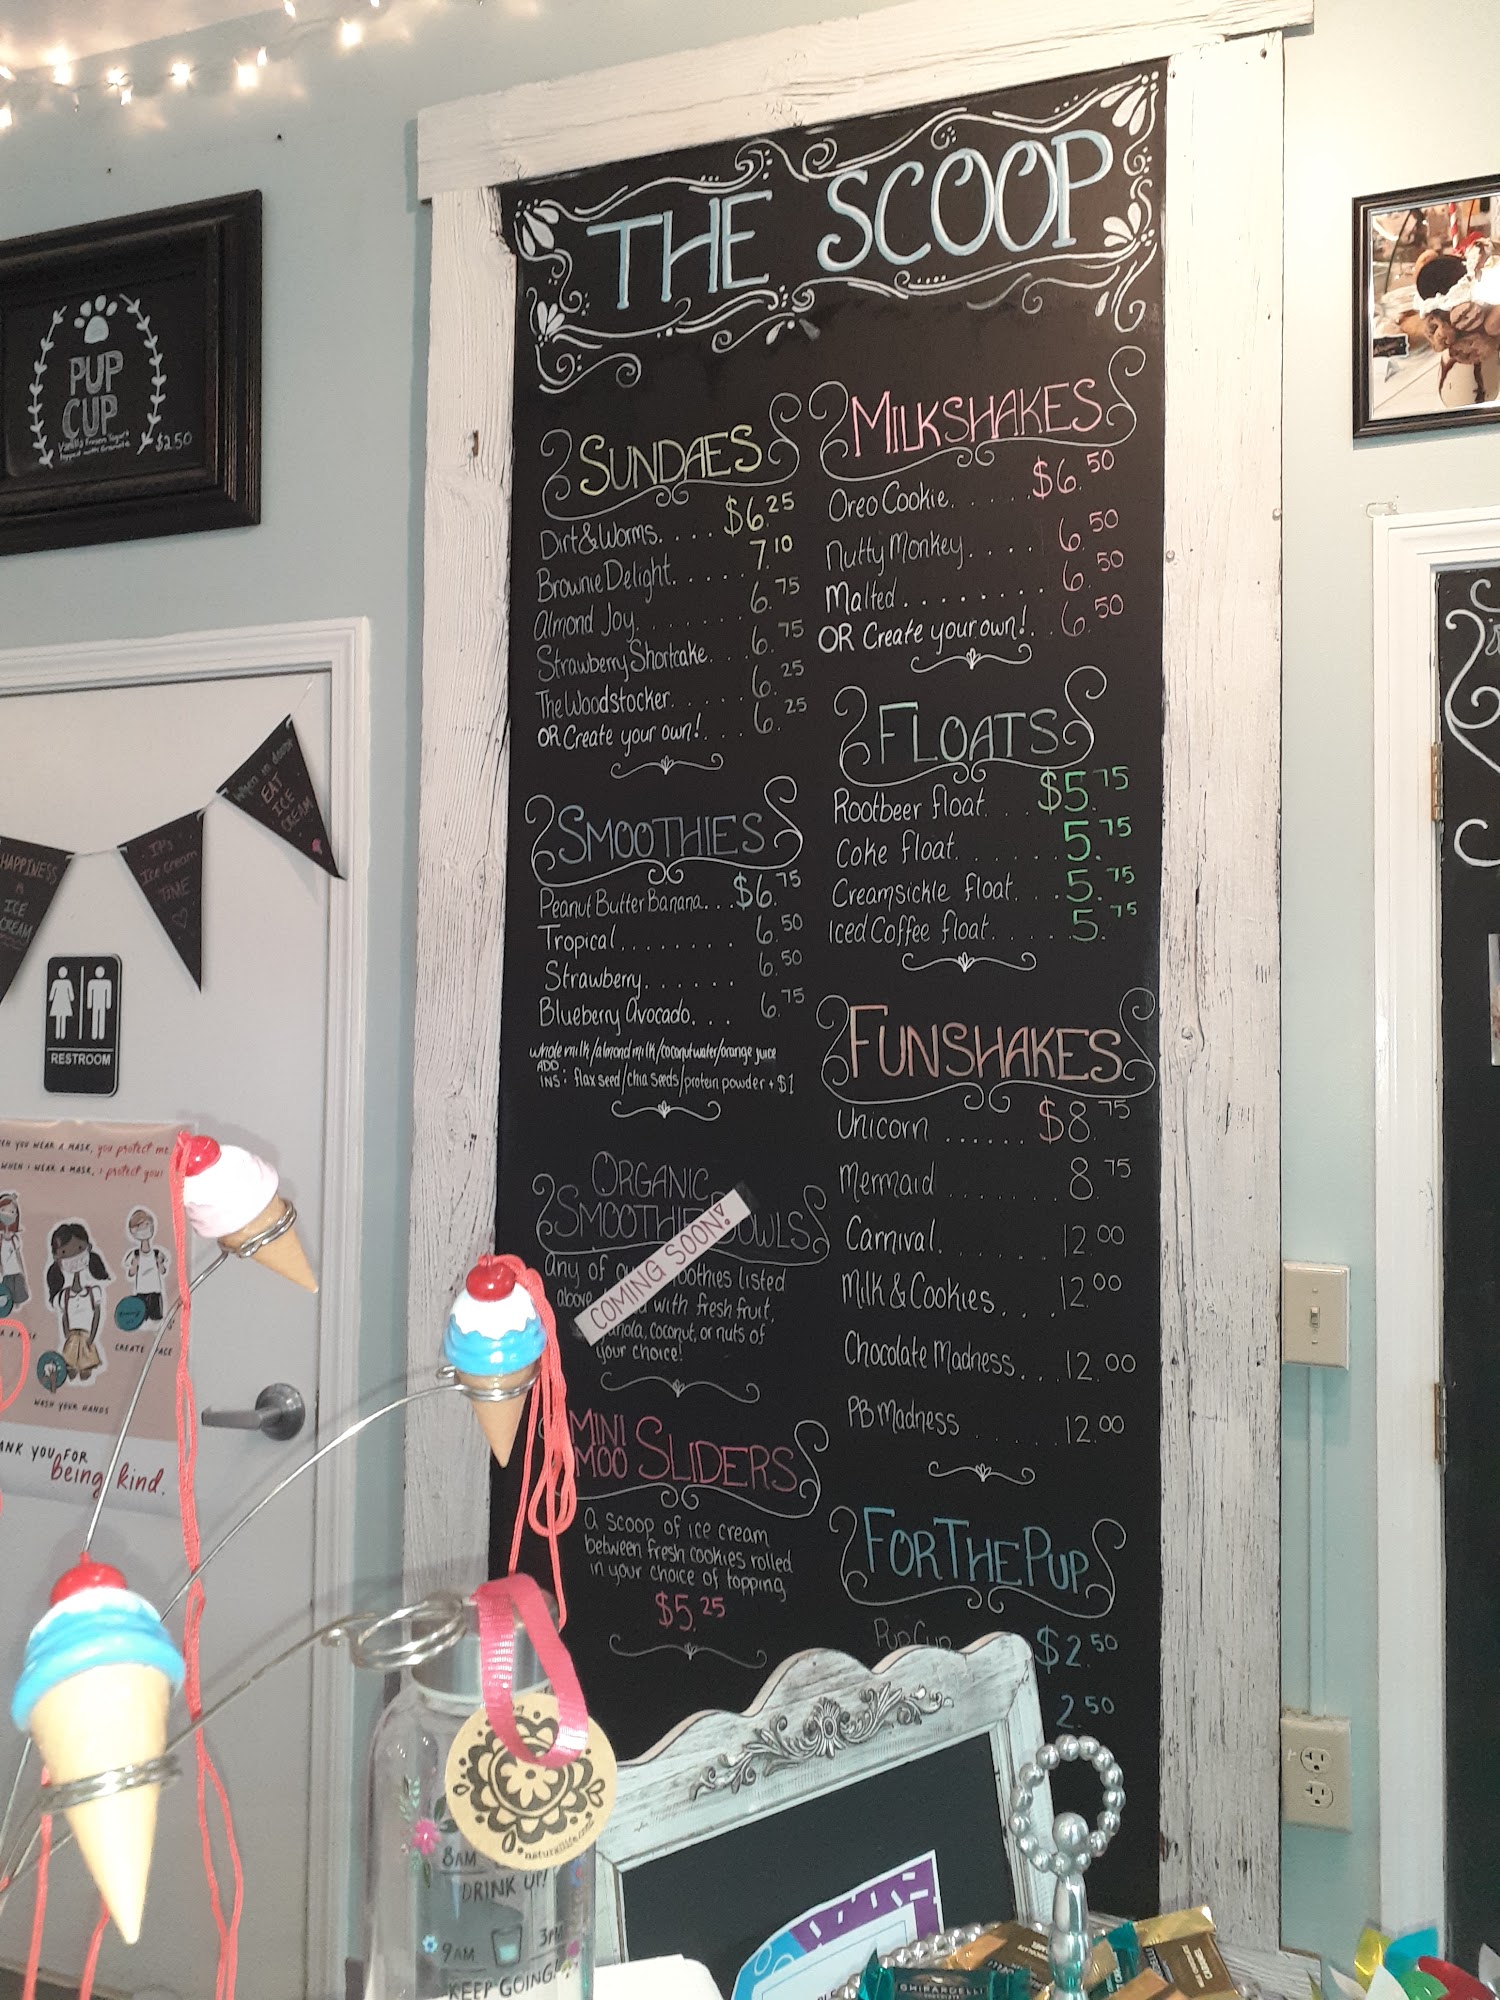 THE SCOOP
SUNDAES
Dirt & Worms. . . . $6.25
Brownie Delight. . . . . 7.10
Almond Joy. . . . . . . 6.75
Strawberry Shortcake. . . 6.75
The Woodstocker. . . . . 6.25
OR Create your own!. . . 6.25
SMOOTHIES
Peanut Butter Banana. . . $6.75
Tropical. . . . . . . . 6.50
Strawberry. . . . . . 6.50
Blueberry Avocado. . . 6.75
whole milk/almond milk/coconut water/orange juice
ADD
INS: flax seed/chia seeds/protein powder + $1
ORGANIC
SMOOTHIE BOWLS
COMING SOON!
any of our smoothies listed
above with fresh fruit,
coconut, or nuts of
your choice!
MINI
MOO SLIDERS
a scoop of ice cream
between fresh cookies rolled
in your choice of topping
$5.25
MILKSHAKES
Oreo Cookie. . . . . $6.50
Nutty Monkey. . . . 6.50
Malted. . . . . . . . 6.50
OR Create your own!. . 6.50
FLOATS
Rootbeer float. . . $5.75
Coke float. . . . . . 5.75
Creamsickle float. . . 5.75
Iced Coffee float. . . . . 5.75
FUNSHAKES
Unicorn ...... $8.75
Mermaid ....... 8.75
Carnival. . . . . . . 12.00
Milk & Cookies. . . . 12.00
Chocolate Madness. . . 12.00
PB Madness . . . . . 12.00
FOR THE PUP
Pup Cup $2.50
2.50
PUP
CUP
Vanilla Frozen Yogurt
topped with
$2.50
When in doubt
EAT
ICE
CREAM
It's
Ice Cream
TIME
HAPPINESS
ICE
CREAM
RESTROOM
YOU WEAR A MASK, you protect me
WHEN I WEAR A MASK, I protect you!
WASH YOUR HANDS
CREATE
YOU FOR
being kind.
naturallife.com
8AM
DRINK UP!
9AM
3PM
KEEP GOING!
GHIRARDELLI